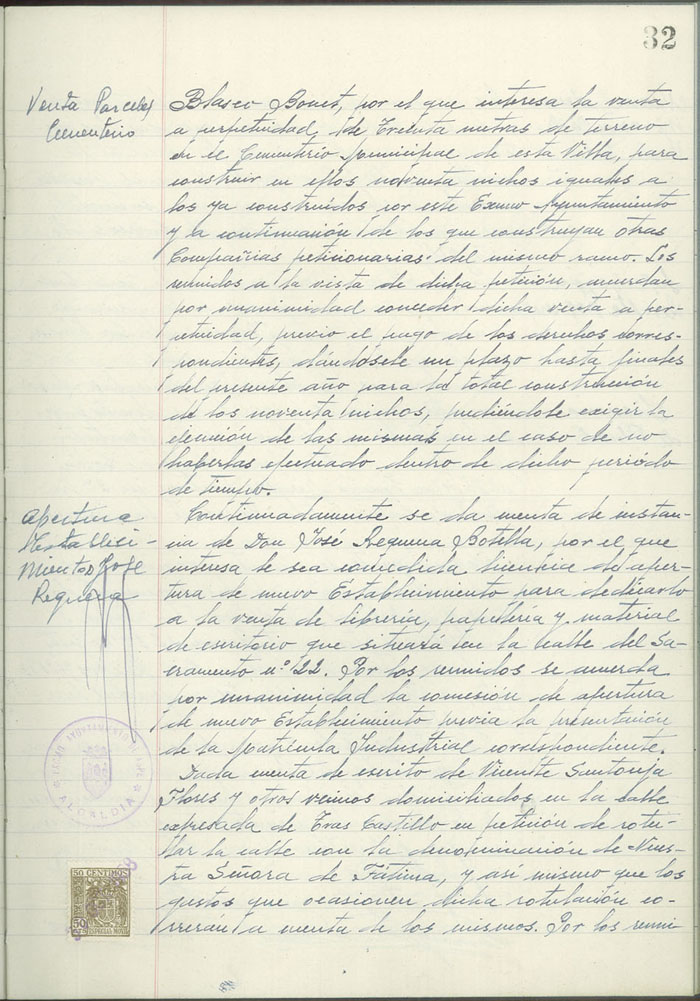 32
Venta Parcelas
Cementerio
Blasco Bonet, por el que interesa la venta
a perpetuidad, de treinta metros de terreno
en el Cementerio Municipal de esta Villa, para
construir en ellos noventa nichos iguales a
los ya construidos por este Excmo Ayuntamiento
y a continuación de los que construyan otras
Compañias peticionarias del mismo ramo. Los
reunidos a la vista de dicha petición, acuerdan
por unanimidad conceder dicha venta a per-
petuidad, previo el pago de los derechos corres-
pondientes, dándosele un plazo hasta finales
del presente año para la total construcción
de los noventa nichos, pudiéndole exigir la
de las mismas en el caso de no
haberlas efectuado dentro de dicho período
de tiempo.
Apertura
Estableci-
miento José
Requena
Continuadamente se da cuenta de instan-
cia de Don José Requena Botella, por el que
interesa le sea concedida licencia de aper-
tura de nuevo Establecimiento para dedicarlo
a la venta de librería, papelería y material
de escritorio que situará en la calle del Sa-
cramento nº 22. Por los reunidos se acuerda
por unanimidad la concesión de apertura
de nuevo Establecimiento previa la presentación
de la Matrícula Industrial correspondiente.
Dada cuenta de escrito de Vicente Santonja
Flores y otros vecinos domiciliados en la calle
expresada de Tras Castillo en petición de rotu-
lar la calle con la denominación de Nues-
tra Señora de Fátima, y así mismo que los
gastos que ocasionen dicha rotulación co-
rrerán a cuenta de los mismos. Por los reuni
ALCALDIA
50 CENTIMOS
ESPECIAL MOVIL